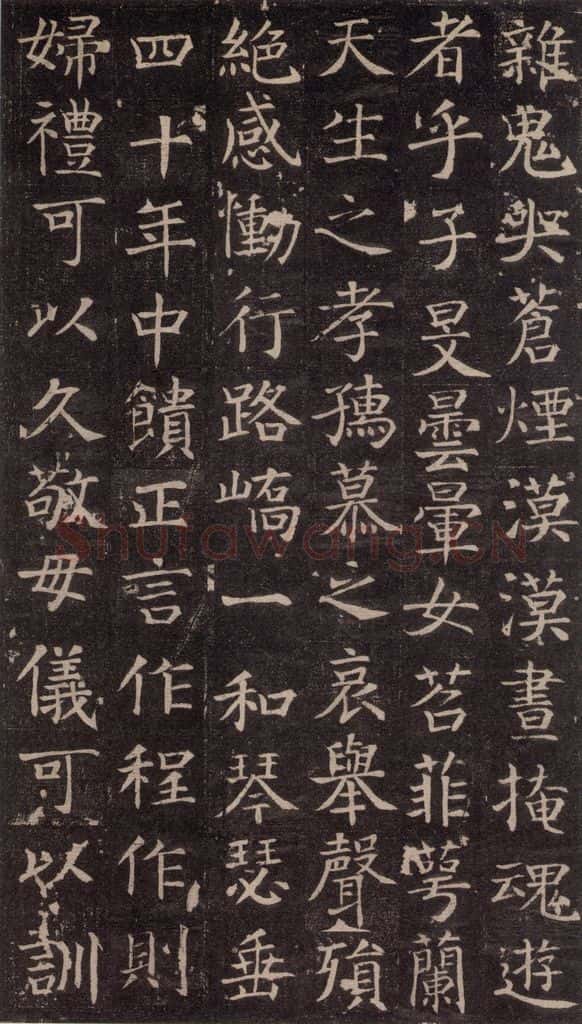 雜鬼哭蒼煙漠漠晝掩魂遊
者乎子旻曇暈女苕菲萼蘭
天生之孝孺慕之哀舉聲殞
絕感慟行路嶠一和琴瑟垂
四十年中饋正言作程作則
婦禮可以久敬毋儀可以訓
Shufawang.CN